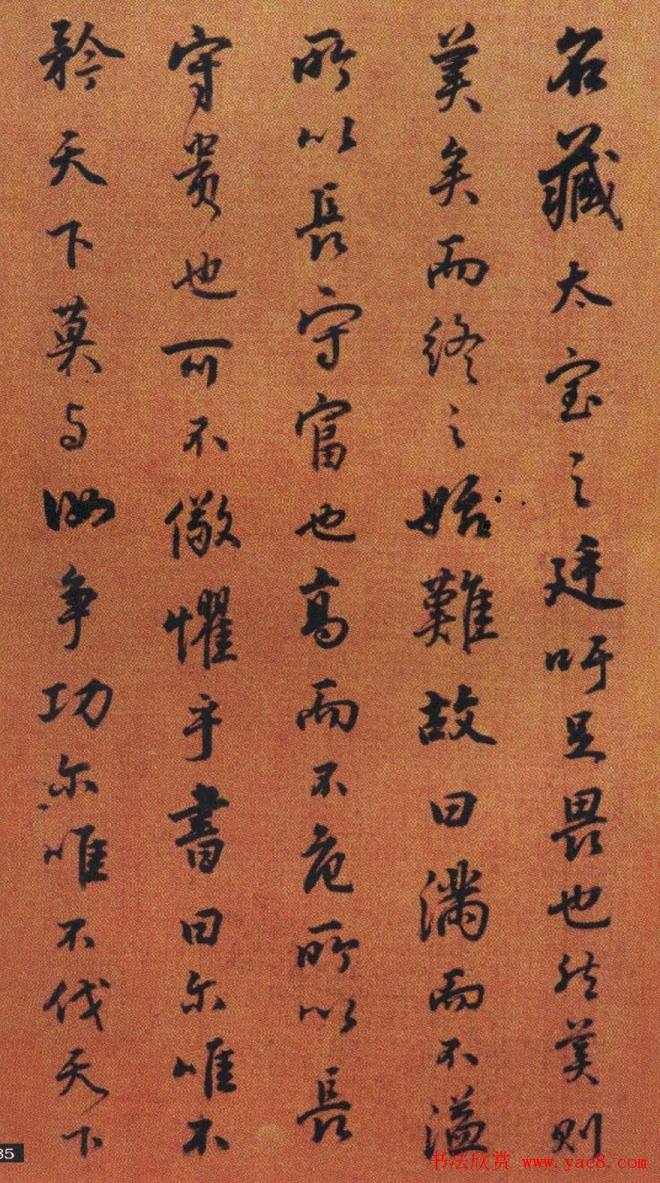 名藏太室之廷吁足畏也然美則
美矣而終之始難故曰滿而不溢
所以長守富也高而不危所以長
守貴也可不儆懼乎書曰尔唯不
矜天下莫与汝争功尔唯不伐天下
35
书法欣赏 www.yac8.com